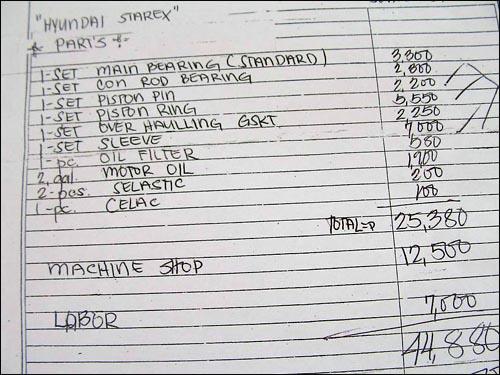 "HYUNDAI STAREX"
* PARTS *
1-SET MAIN BEARING (STANDARD) 3,300
1-SET CON ROD BEARING 2,800
1-SET PISTON PIN 2,200
1-SET PISTON RING 5,550
1-SET OVER HAULLING GSKT 2,250
1-SET SLEEVE 7,000
1-pc. OIL FILTER 580
2, gal. MOTOR OIL 1,400
2-pcs. SELASTIC 200
1-pc. CELAC 100
TOTAL=P 25,380
MACHINE SHOP 12,500
LABOR 7,000
44,880